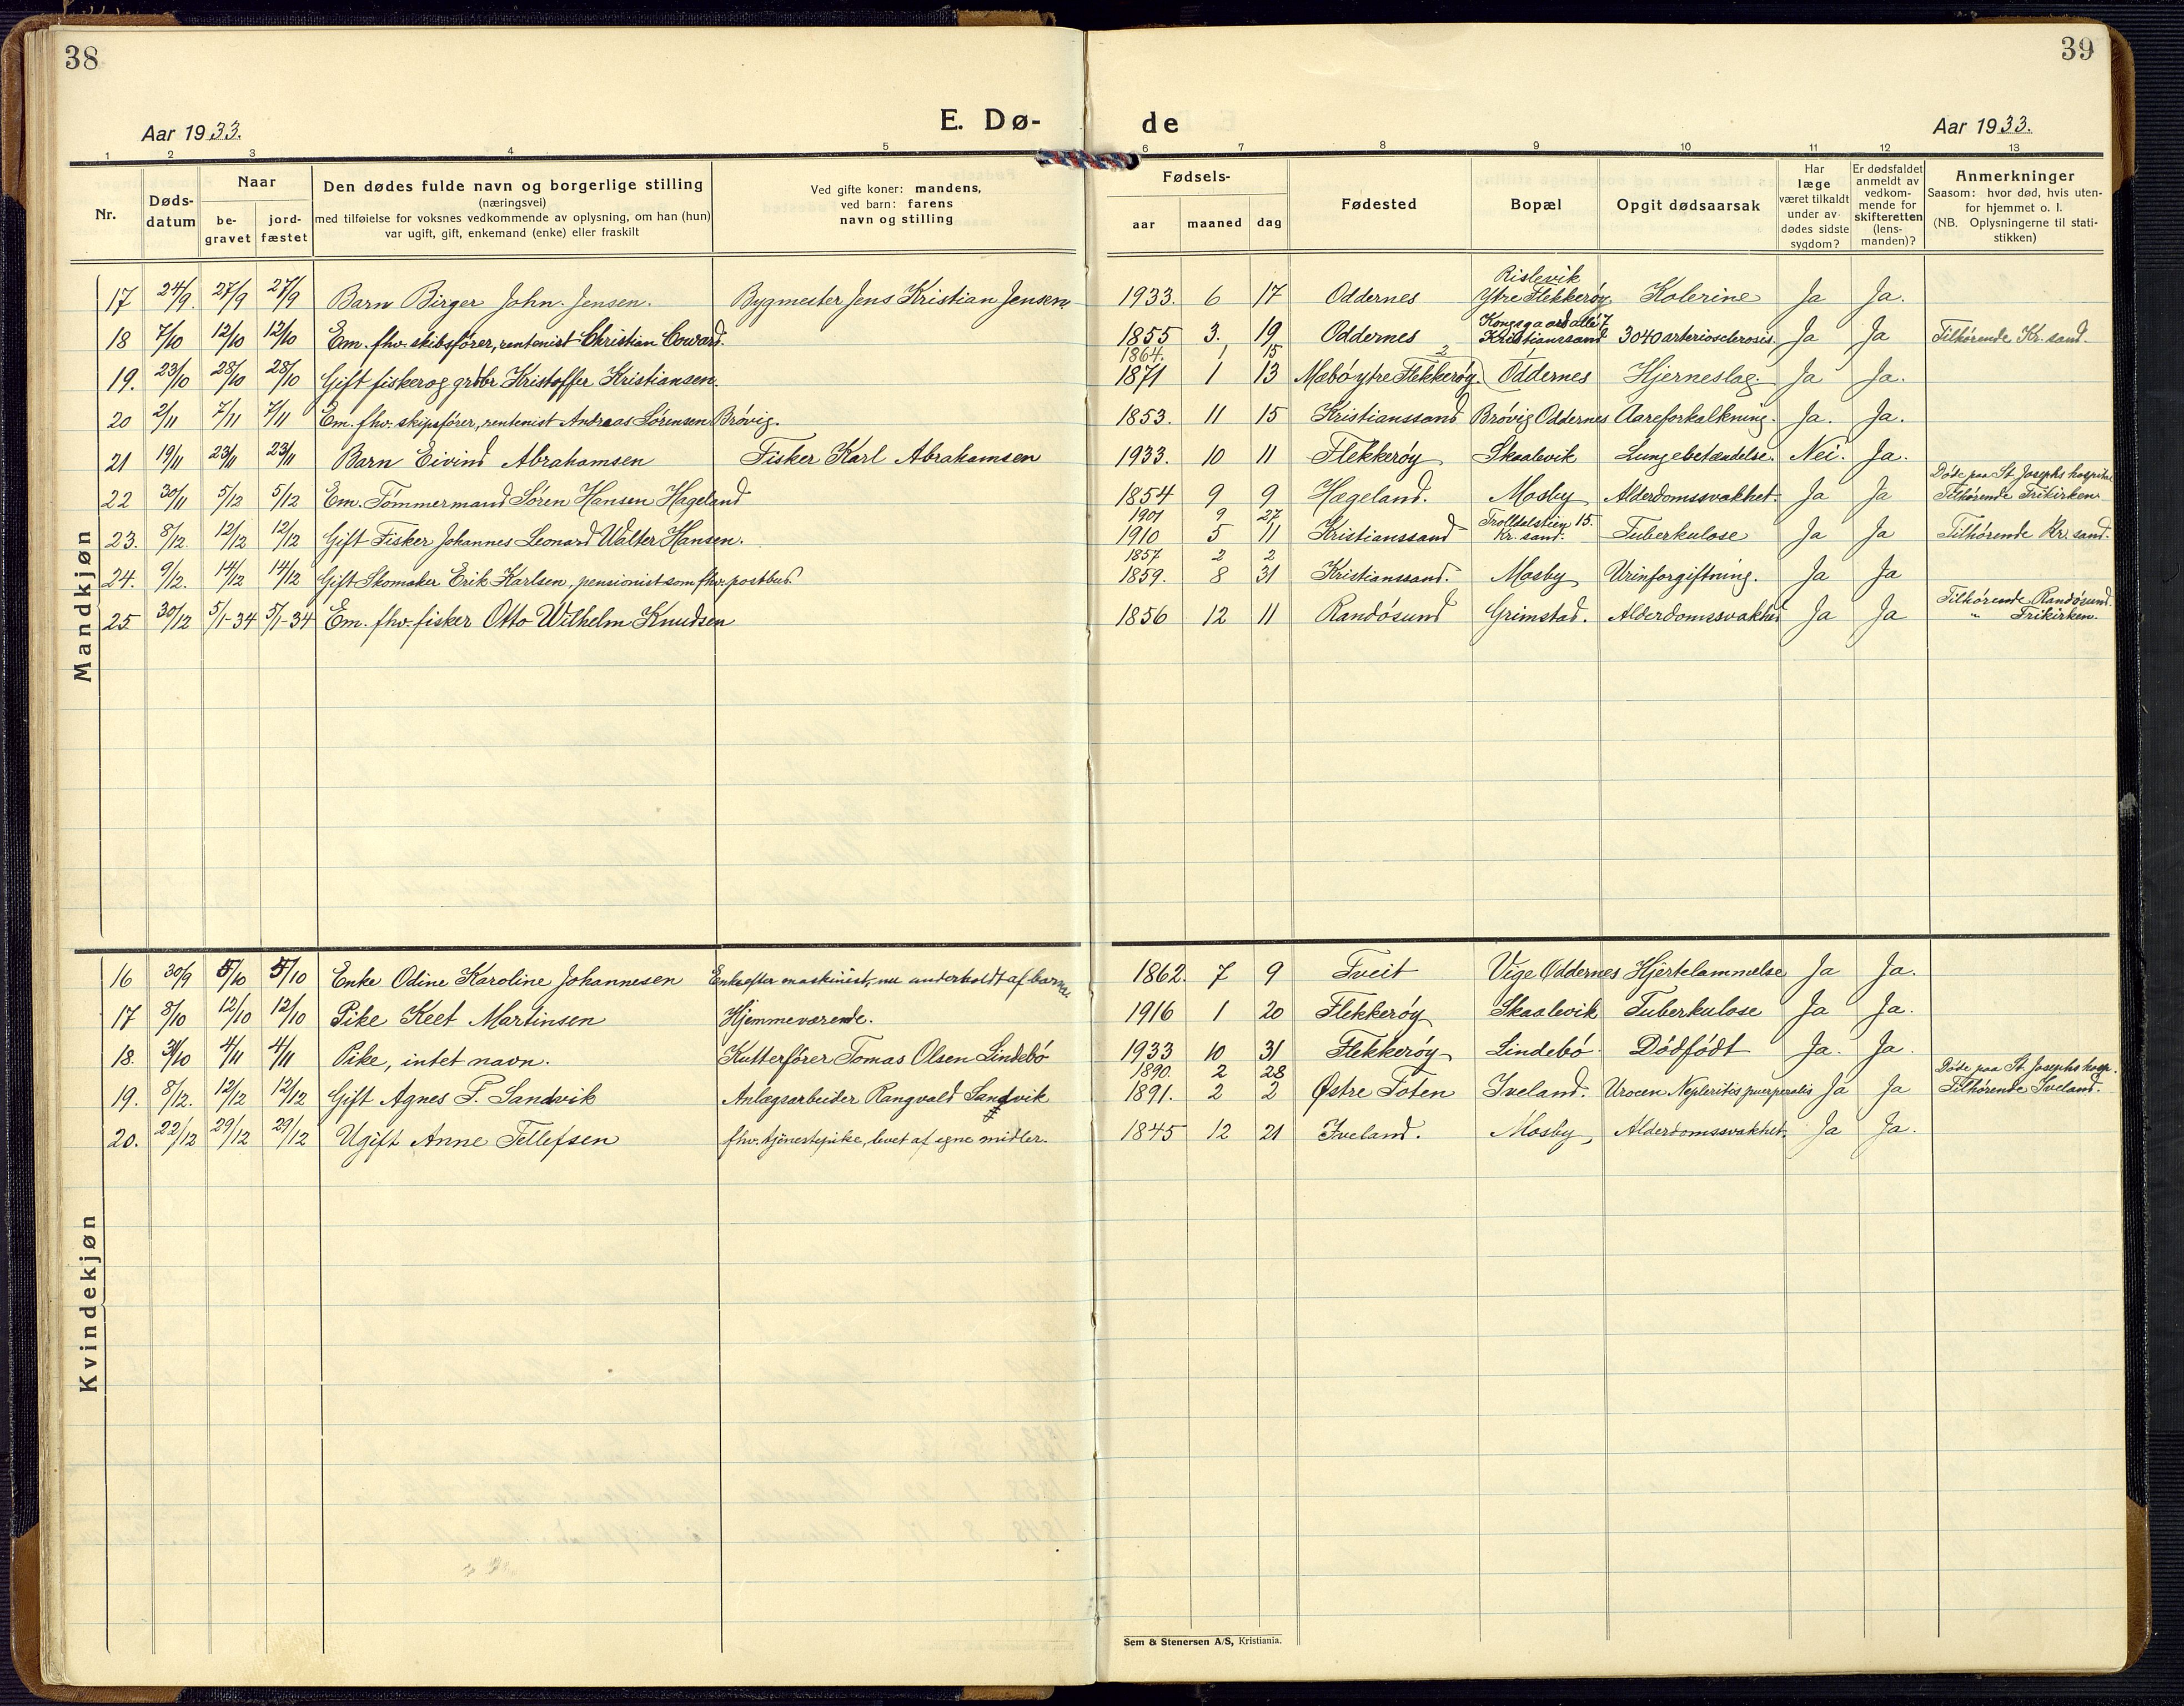 38
39
Aar 1933.
E. Dø-
de
Aar 1933.
1 2 3 4 5 6 7 8 9 10 11 12 13
Nr.
Døds-
datum
Naar
be-
gravet
jord-
fæstet
Den dødes fulde navn og borgerlige stilling
(næringsvei)
med tilføielse for voksnes vedkommende av oplysning, om han (hun)
var ugift, gift, enkemand (enke) eller fraskilt
Ved gifte koner: mandens,
ved barn: farens
navn og stilling
Fødsels-
aar maaned dag
Fødested
Bopæl
Opgit dødsaarsak
Har
læge
været tilkaldt
under av-
dødes sidste
sygdom?
Er dødsfaldet
anmeldt av
vedkom-
mende for
skifteretten
(lens-
manden)?
Anmerkninger
Saasom: hvor død, hvis uten-
for hjemmet o. l.
(NB. Oplysningerne til stati-
stikken)
Mandkjøn
Rislevik
17 24/9. 27/9 27/9 Barn Birger John. Jensen. Bygmester Jens Kristian Jensen 1933. 6 17 Oddernes Ytre Flekkerøy Kolerine Ja Ja.
Kongsgaard allé 7
18 7/10 12/10 12/10 Em. fhv. skibsfører, rentenist Christian Coward. 1855 3. 19 Oddernes Kristianssand 3040 arteriosclerosis. Ja Ja Tilhørende Kr. sand.
1864. 1 15
19. 23/10 28/10 28/10 Gift fisker og grdbr. Kristoffer Kristiansen. 1871 1 13 Mæbø ytre Flekkerøy. Oddernes Hjerneslag. Ja Ja.
20 2/11 7/11 7/11 Em. fhv. skipsfører, rentenist Andreas Sørensen Brøvig. 1853. 11 15 Kristianssand Brøvig Oddernes Aareforkalkning. Ja. Ja.
21 19/11 23/11 23/11 Barn Eivind Abrahamsen Fisker Karl Abrahamsen 1933. 10 11 Flekkerøy Skaalevik Lungebetændelse. Nei. Ja.
Døde paa St. Josephs hospital
22 30/11 5/12 5/12 Em. Tømmermand Søren Hansen Hageland 1854 9 9 Hægeland. Mosby Alderdomssvakhet. Ja Ja Tilhørende Frikirken
1901 9 27 Trolldalstien 15.
23. 8/12. 12/12 12/12 Gift Fisker Johannes Leonard Walter Hansen. 1910 5 11 Kristianssand Kr. sand. Tuberkulose Ja Ja Tilhørende Kr. sand.
1857 2 2
24. 9/12. 14/12 14/12 Gift Skomaker Erik Karlsen, pensionist som fhv. postbud. 1859. 8 31 Kristianssand. Mosby Urinforgiftning. Ja Ja
Tilhørende Randøsund.
25 30/12 5/1-34 5/1-34 Em. fhv. fisker Otto Wilhelm Knudsen 1856 12 11 Randøsund Grimstad. Alderdomssvakhet Ja Ja " Frikirken.
Kvindekjøn
16 30/9 5/10 5/10 Enke Odine Karoline Johannesen Enke efter maskinist, nu underholdt af barna. 1862. 7 9 Tveit Vige Oddernes Hjertelammelse Ja Ja.
17 8/10 12/10 12/10 Pike Keet Martinsen Hjemmeværende. 1916 1 20 Flekkerøy Skaalevik Tuberkulose Ja Ja.
18. 31/10 4/11 4/11 Pike, intet navn. Kutterfører Tomas Olsen Lindebø 1933 10 31 Flekkerøy Lindebø Dødfødt Ja. Ja.
1890. 2 28 Døde paa St. Josephs hosp.
19. 8/12. 12/12 12/12 Gift Agnes F. Sandvik Anlægsarbeider Rangvald Sandvik 1891. 2 2 Østre Toten Iveland. Ja Ja Tilhørende Iveland.
20. 22/12 29/12 29/12 Ugift Anne Tellefsen fhv. tjenestepike, levet af egne midler. 1845 12 21 Iveland. Mosby, Alderdomssvakhet. Ja Ja.
Sem & Stenersen A/S, Kristiania.